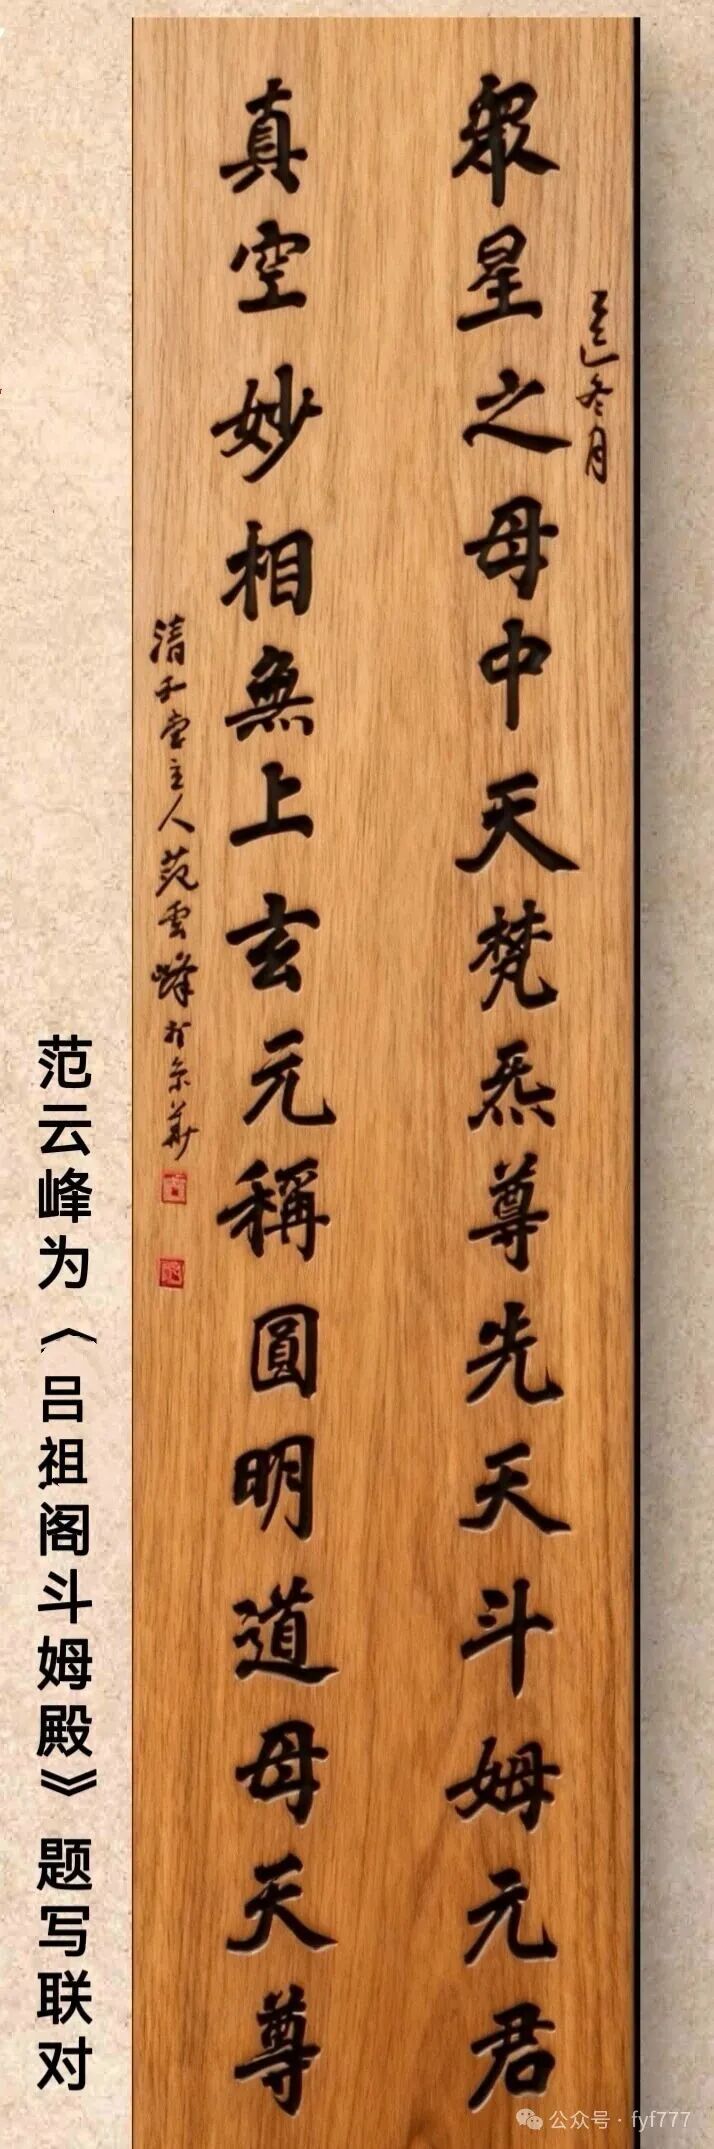 乙巳冬月
衆星之母中天梵炁尊先天斗姆元君
真空妙相無上玄元稱圓明道母天尊
清和堂主人范雲峰於京華
范云峰为《吕祖阁斗姆殿》题写联对
公众号·fyf777